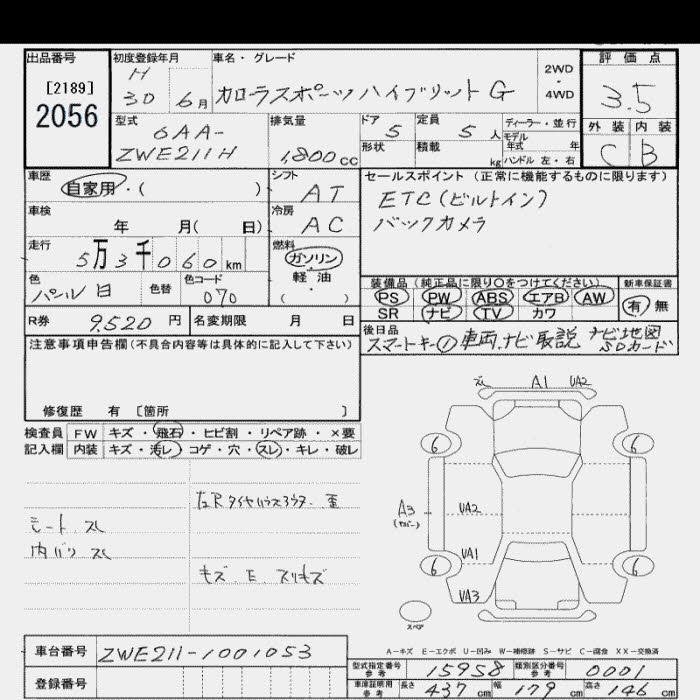 出品番号
[2189]
2056
初度登録年月
H
30 6月
車名・グレード
カローラスポーツハイブリットG
2WD
・
4WD
評価点
3.5
外装 内装
C B
型式
6AA-
ZWE211H
排気量
1,800cc
ドア
5
定員
5人
形状
積載
kg
ディーラー・並行
モデル
年式 年
ハンドル 左・右
車歴
自家用・( )
シフト
AT
車検
年 月( 日)
冷房
AC
走行
5万3千060km
燃料
ガソリン
・
軽・油
( )
色
パール白
色替
色コード
070
R券 9,520円
名変期限 月 日
セールスポイント(正常に機能するものに限ります)
ETC(ビルトイン)
バックカメラ
装備品(純正品に限り○をつけてください)
PS PW ABS エアB AW
SR ナビ TV カワ
新車保証書
有 無
後日品
スマートキー① 車両、ナビ取説 ナビ地図
SDカード
注意事項申告欄(不具合内容等は具体的に記入して下さい)
修復歴 有 [箇所 ]
検査員 FW キズ・飛石・ヒビ割・リペア跡・×要
記入欄 内装 キズ・汚レ・コゲ・穴・スレ・キレ・破レ
シート スレ
内バリ スレ
キズ E スリキズ
A1 UA2
6 6
A3
(カバー)
UA2
UA1
6 6
UA3
スペア
A-キズ E-エクボ U-凹み W-補修跡 S-サビ C-腐食 XX-交換済
車台番号 ZWE211-1001053
登録番号
型式指定番号
参考
15958
類別区分番号
参考
0001
車庫証明用
参考
長さ 437cm 幅 179cm 高さ 146cm